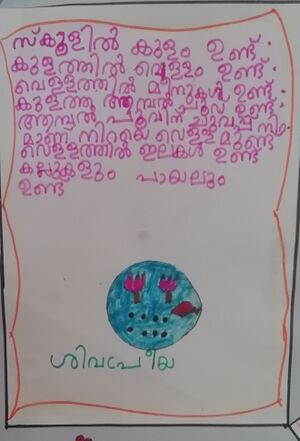 സ്കൂളിൽ കുളം ഉണ്ട്.
കുളത്തിൽ വെള്ളം ഉണ്ട്.
വെള്ളത്തിൽ മീനുകൾ ഉണ്ട്.
കുളത്തൂ ആമ്പൽ പൂവ് ഉണ്ട്.
ആമ്പൽ പൂവിന് ചുവപ്പു നിറം
മുണ്ട് നിറയെ വെള്ള മുണ്ട്
വെള്ളത്തിൽ ഇലകൾ ഉണ്ട്
കല്ലുകളും പായലും
ഉണ്ട്
ശിവപ്രിയ